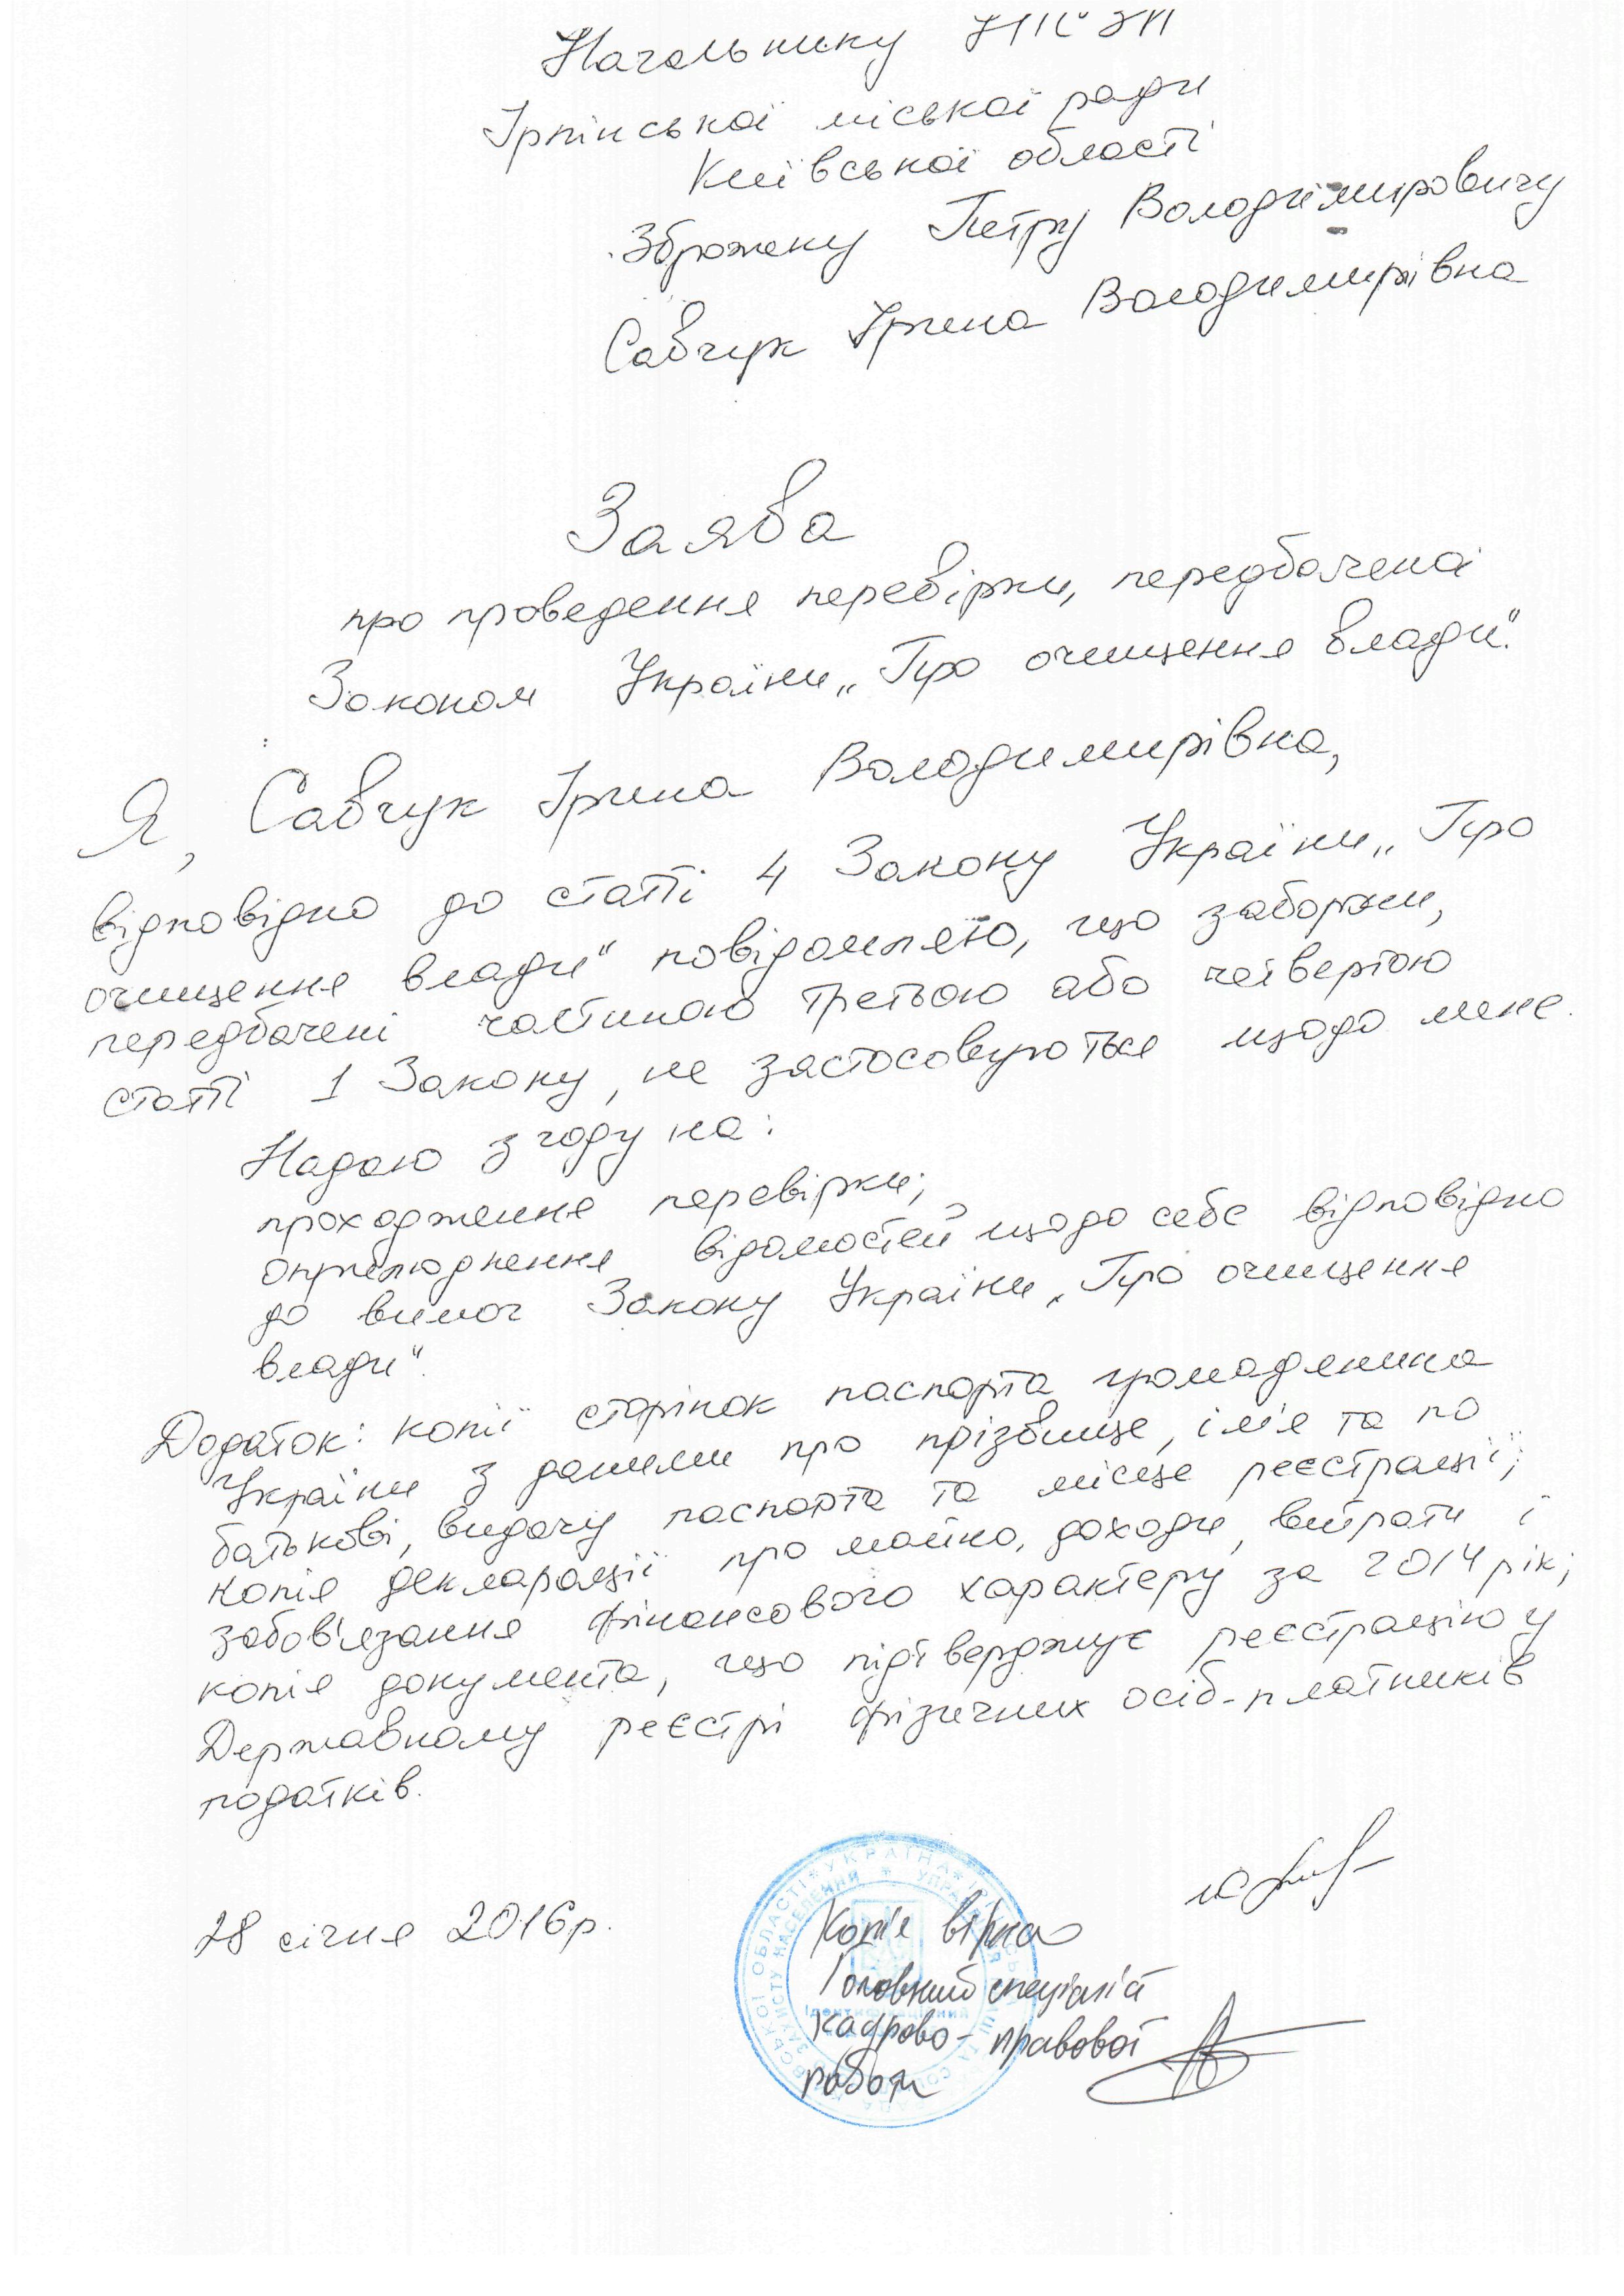 Начальнику
Ірпінської міської ради
Київської області
Зброжеку Петру Володимировичу
Савчук Ірина Володимирівна
Заява
про проведення перевірки, передбаченої
Законом України „Про очищення влади".
Я, Савчук Ірина Володимирівна,
відповідно до статті 4 Закону України „Про
очищення влади" повідомляю, що заборони,
передбачені частиною третьою або четвертою
статті 1 Закону, не застосовуються щодо мене.
Надаю згоду на:
проходження перевірки;
оприлюднення відомостей щодо себе відповідно
до вимог Закону України „Про очищення
влади".
Додаток: копії сторінок паспорта громадянина
України з даними про прізвище, ім'я та по
батькові, видачу паспорта та місце реєстрації;
копія декларації про майно, доходи, витрати і
зобов'язання фінансового характеру за 2014 рік;
копія документа, що підтверджує реєстрацію у
Державному реєстрі фізичних осіб-платників
податків.
28 січня 2016р.
УКРАЇНА
Копія вірна
Головний спеціаліст
кадрово-правової
роботи